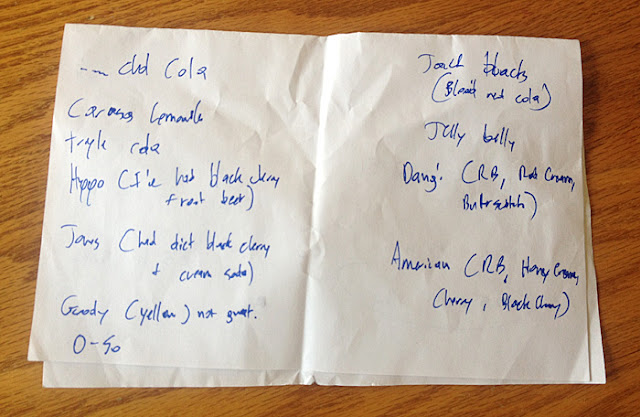 cola
Lemonade
cola
Hippo (I've had black cherry
& root beer)
Jones (had diet black cherry
+ cream soda)
Goody (yellow) not great.
O-So
Jack Black's
(Blood red cola)
Jelly belly
Dang! (RB, Red Cream,
Butterscotch)
American (RB, Honey Cream,
Cherry, Black Cherry)